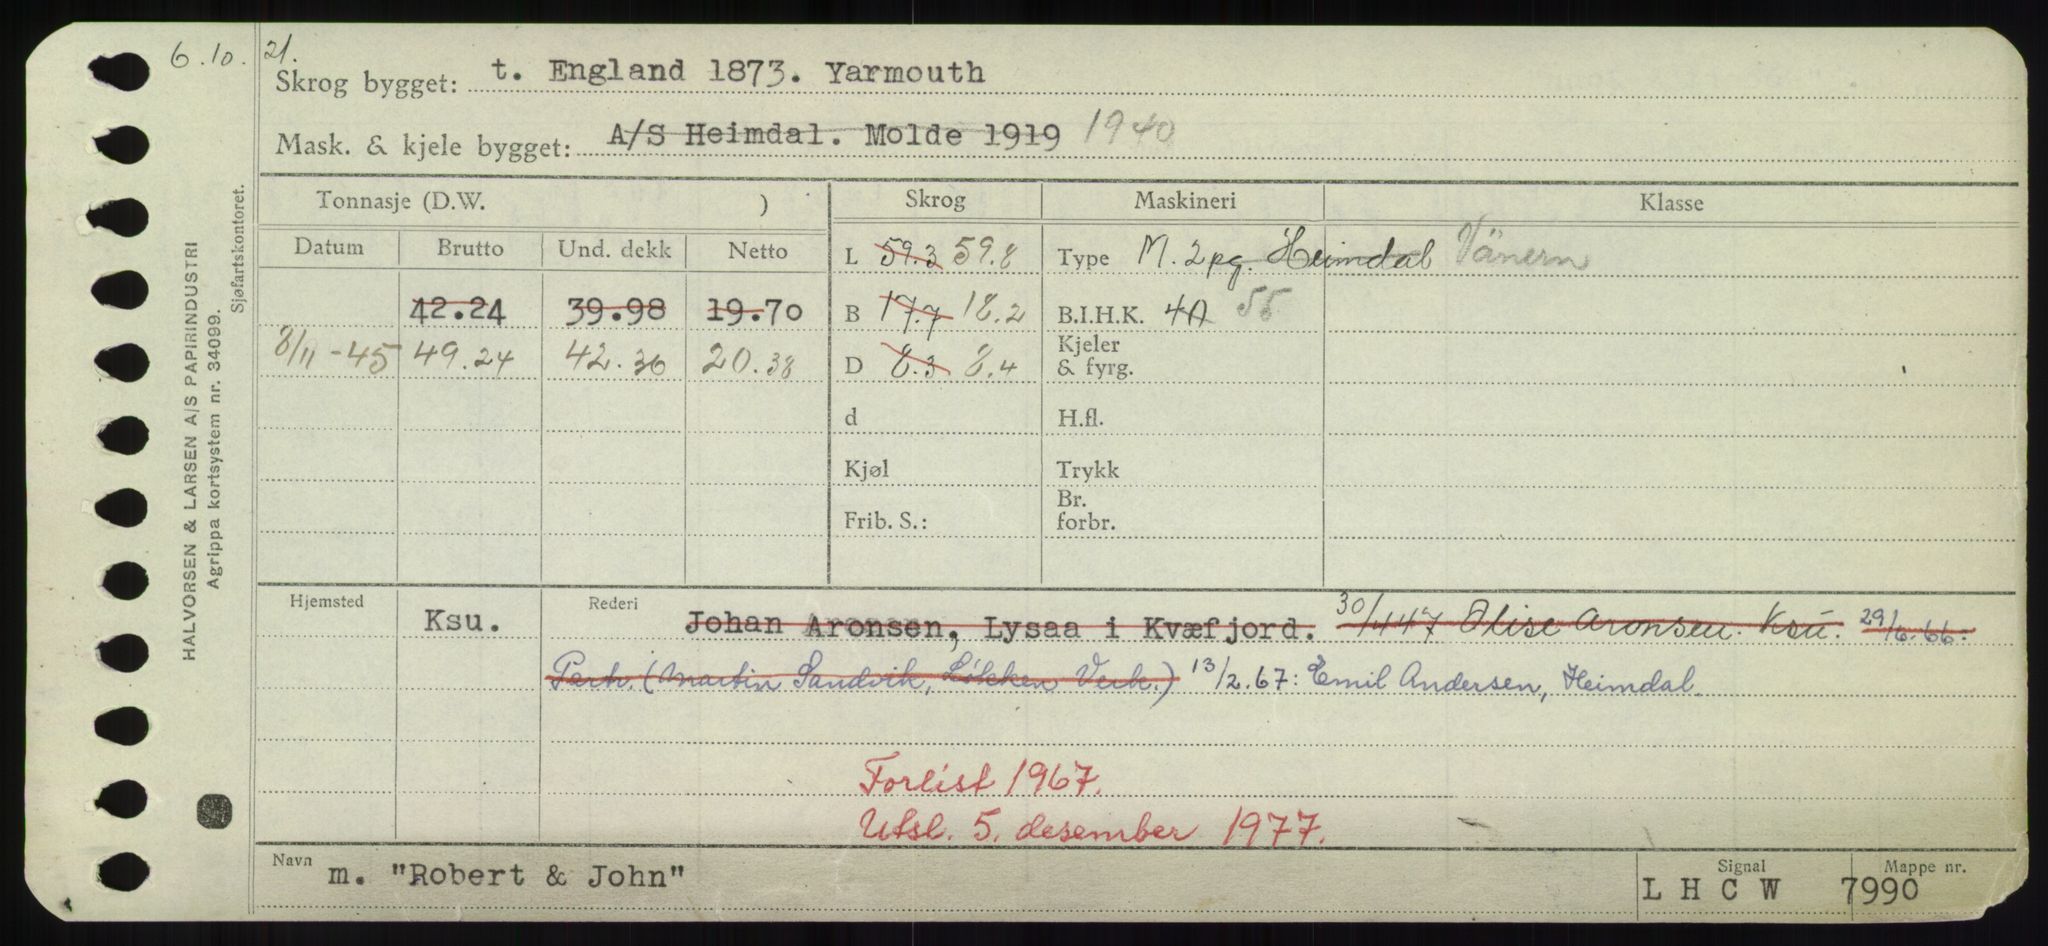 6.10.21.
Skrog bygget: t. England 1873. Yarmouth
Mask. & kjele bygget: A/S Heimdal. Molde 1919 1940
Tonnasje (D.W. ) Skrog Maskineri Klasse
Datum Brutto Und. dekk Netto L 59.3 59.8 Type M. 2pg. Heimdal Vänern
42.24 39.98 19.70 B 17.7 18.2 B.I.H.K. 4A 55
8/11-45 49.24 42.36 20.38 D 8.3 8.4 Kjeler & fyrg.
d H.fl.
Kjøl Trykk
Frib. S.: Br. forbr.
Hjemsted Ksu. Rederi Johan Aronsen, Lysaa i Kvæfjord. 30/447 Olise Aronsen. Ksu. 29/6.66:
Partr. (Martin Sandvik, Løkken Verk.) 13/2.67: Emil Andersen, Heimdal.
Forlist 1967.
Utsl. 5. desember 1977.
Navn m. "Robert & John" Signal LHCW Mappe nr. 7990
HALVORSEN & LARSEN A/S PAPIRINDUSTRI
Agrippa kortsystem nr. 34099.
Sjøfartskontoret.